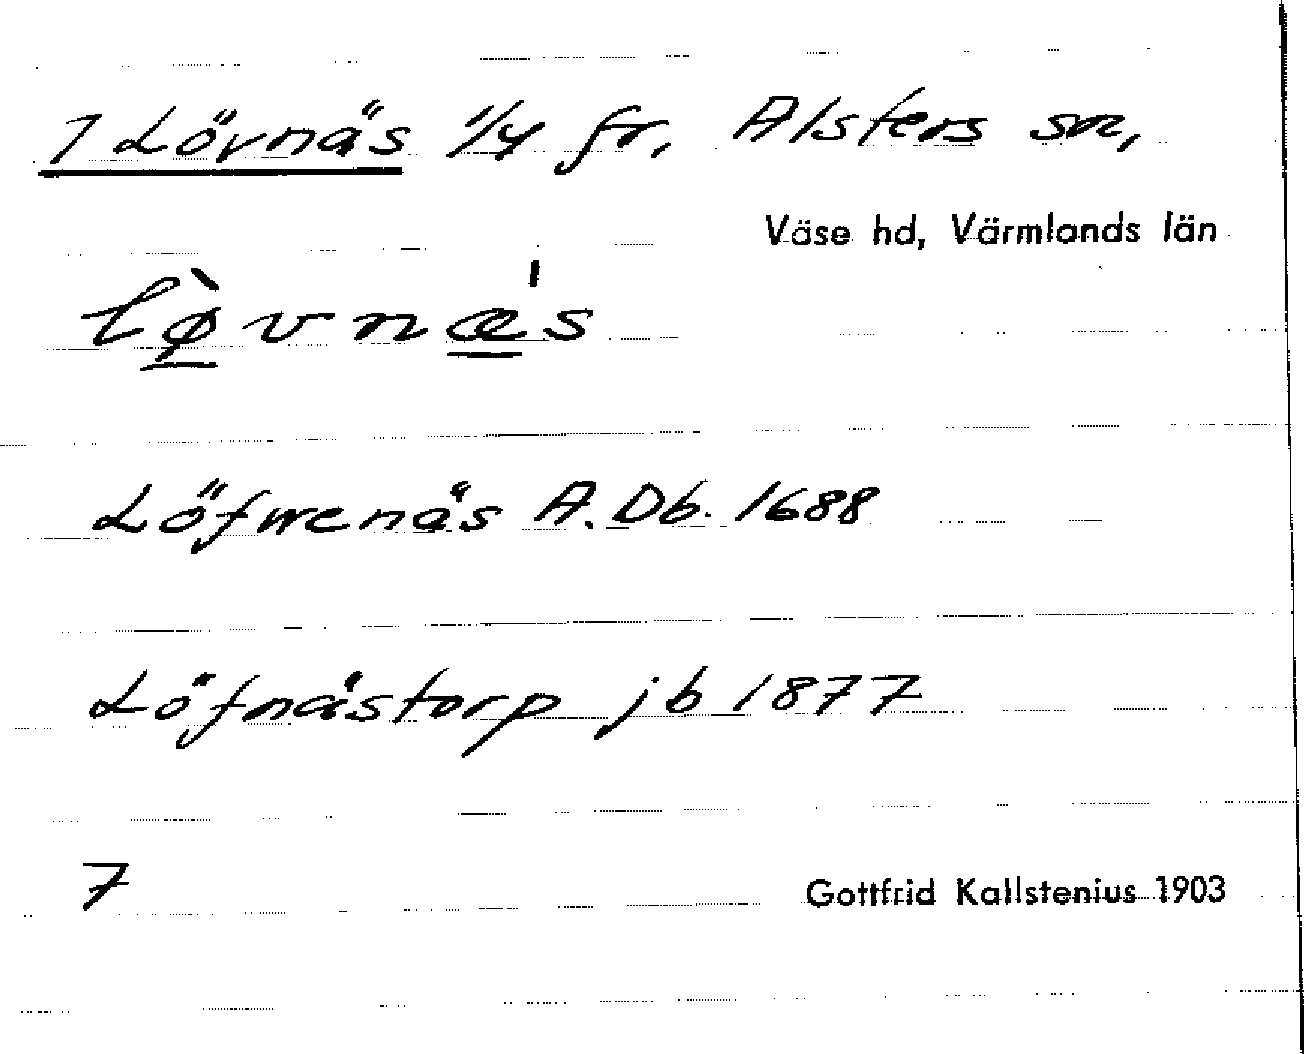 1 Lövnäs 1/4 fr, Alsters sn,
Väse hd, Värmlands län
lø̀vnæ's
Löfwenäs A.Db. 1688
Löfnästorp jb 1877
7
Gottfrid Kallstenius 1903